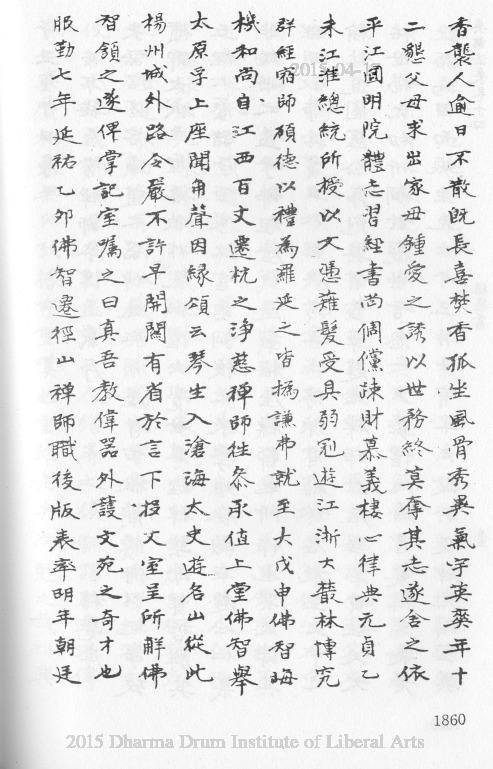 香襲人逾日不散既長喜焚香孤坐風骨秀異氣宇英奕年十
二懇父母求出家母鍾愛之誘以世務終莫奪其志遂舍之依
平江圓明院體志習經書尚倜儻疎財慕義棲心律典元貞乙
未江淮總統所授以文憑薙髮受具弱冠遊江浙大叢林博究
群經宿師碩德以禮為羅延之皆撝謙弗就至大戊申佛智晦
機和尚自江西百丈遷杭之淨慈禪師往參承值上堂佛智舉
太原孚上座聞角聲因緣頌云琴生入滄海太史遊名山從此
楊州城外路令嚴不許早開關有省於言下投丈室呈所解佛
智頷之遂俾掌記室囑之曰真吾教偉器外護文苑之奇才也
服勤七年延祐乙卯佛智遷徑山禪師職後版表率明年朝廷
2015-04-17
1860
2015 Dharma Drum Institute of Liberal Arts